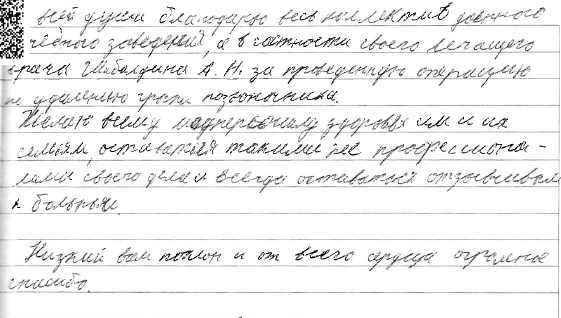 всей души благодарю весь коллектив данного
чебного заведения, а в частности своего лечащего
врача Шабалдина А. Н. за проведенную операцию
по удалению грыжи позвоночника.
Желаю всему медперсоналу здоровья им и их
семьям, оставаться такими же профессиона-
лами своего дела и всегда оставаться отзывчивым
к больным.
Низкий вам поклон и от всего сердца огромное
спасибо.